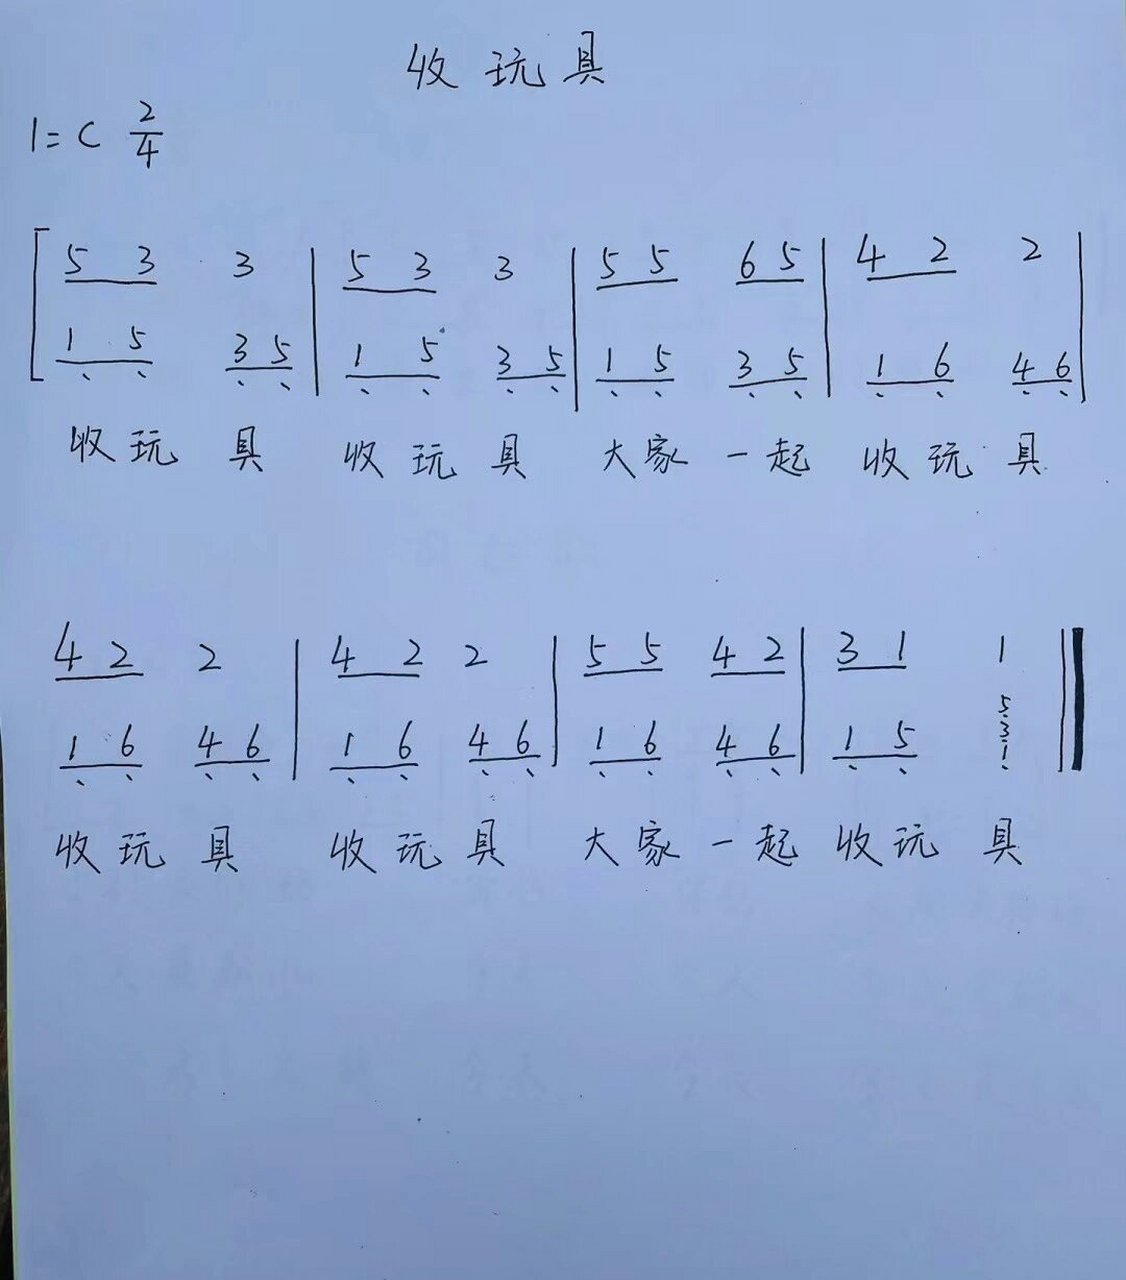 收玩具
1=C 2/4
5 3 3 | 5 3 3 | 5 5 6 5 | 4 2 2 |
1 5 3 5 | 1 5 3 5 | 1 5 3 5 | 1 6 4 6 |
收玩 具 收玩具 大家 一起 收玩 具
4 2 2 | 4 2 2 | 5 5 4 2 | 3 1 1 ||
1 6 4 6 | 1 6 4 6 | 1 6 4 6 | 1 5 5 3 1 ||
收玩 具 收玩具 大家 一起 收玩 具